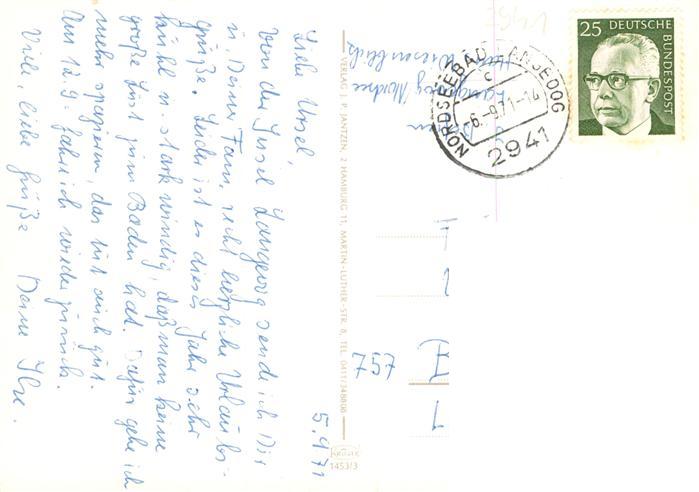 5.9.71
Liebe Ursel,
von der Insel Langeoog sende ich Dir
u. Deiner Fam. recht herzliche Urlaubs-
grüße. Leider ist es dieses Jahr sehr
kühl u. stark windig, daß man keine
große Lust zum Baden hat. Dafür gehe ich
mehr spazieren, das tut auch gut.
Am 12.9. fahre ich wieder zurück.
Viele, liebe Grüße Deine Ilse.
VERLAG J. P. JANTZEN, 2 HAMBURG 11, MARTIN-LUTHER-STR. 8, TEL. 0411/348808
KRÜGER
1453/3
25 DEUTSCHE
BUNDESPOST
NORDSEEBAD LANGEOOG
c
-6.-9.71-14
2941
Nordsee
757